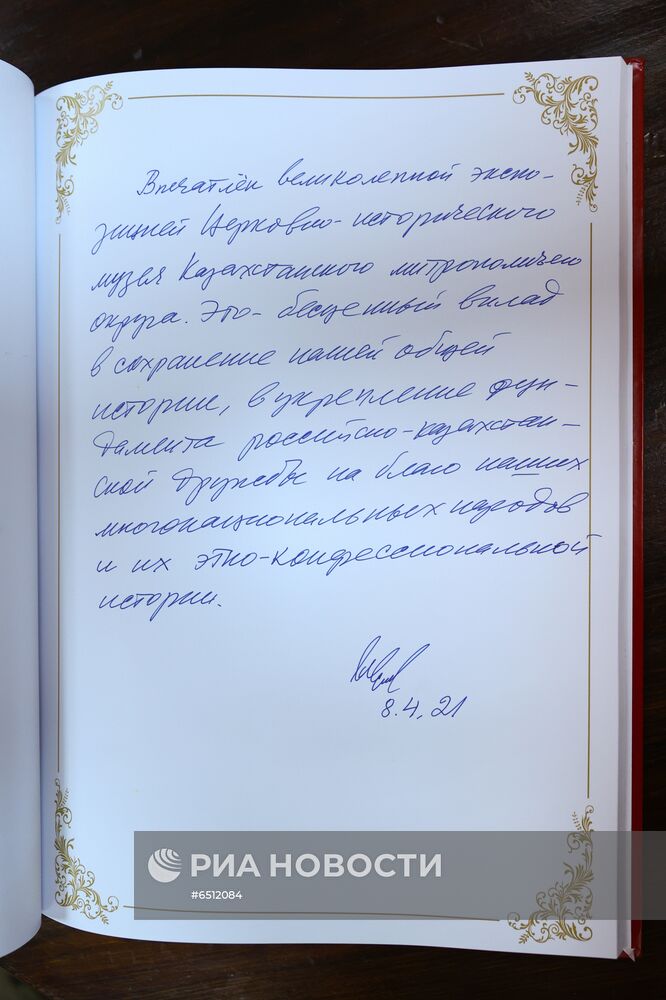 Впечатлён великолепной экспо-
зицией Церковно-исторического
музея Казахстанского митрополичьего
округа. Это - бесценный вклад
в сохранение нашей общей
истории, в укрепление фун-
дамента российско-казахстан-
ской дружбы на благо наших
многонациональных народов
и их этно-конфессиональной
истории.
8.4.21
РИА НОВОСТИ
#6512084